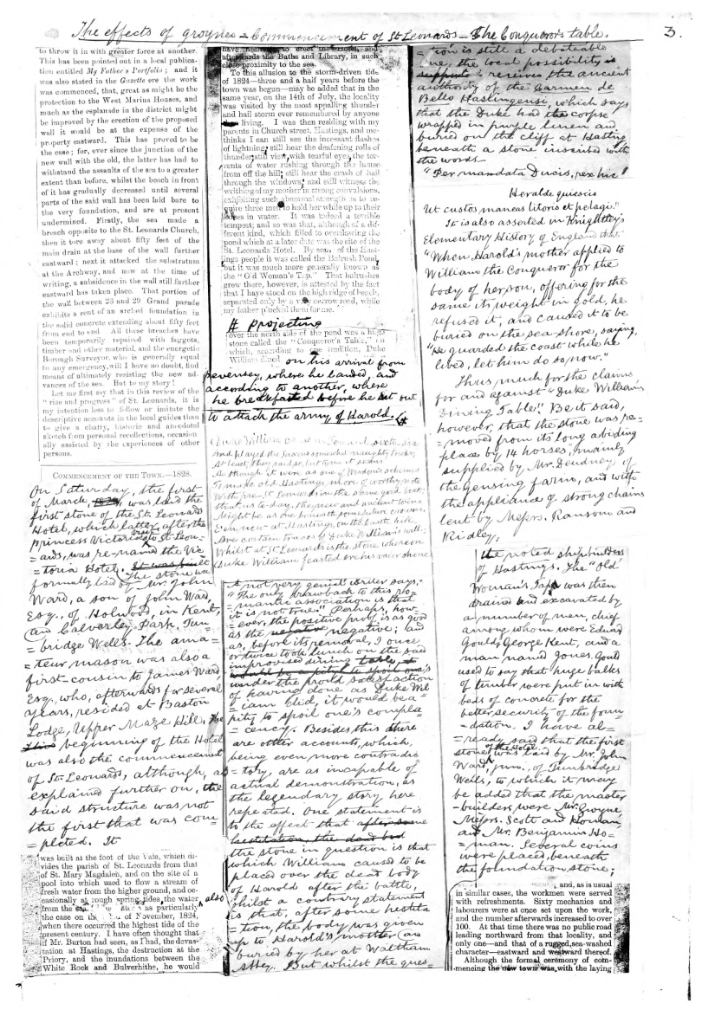 The effects of groynes — Commencement of St Leonards — The Conqueror's table.
3.
to throw it in with greater force at another.
This has been pointed out in a local publica-
tion entitled My Father's Portfolio; and it
was also stated in the Gazette ere the work
was commenced, that, great as might be the
protection to the West Marina Houses, and
much as the esplanade in the district might
be improved by the erection of the proposed
wall it would be at the expense of the
property eastward. This has proved to be
the case; for, ever since the junction of the
new wall with the old, the latter has had to
withstand the assaults of the sea to a greater
extent than before, whilst the beach in front
of it has gradually decreased until several
parts of the said wall has been laid bare to
the very foundation, and are at present
undermined. Firstly, the sea made a
breach opposite to the St. Leonards Church,
then it tore away about fifty feet of the
main drain at the base of the wall further
eastward; next it attacked the substratum
at the Archway, and now at the time of
writing, a subsidence in the wall still further
eastward has taken place. That portion of
the wall between 23 and 29 Grand parade
exhibits a rent of an arched foundation in
the solid concrete extending about fifty feet
from end to end. All these breaches have
been temporarily repaired with faggots,
timber and other material, and the energetic
Borough Surveyor, who is generally equal
to any emergency, will I have no doubt, find
means of ultimately resisting the new ad-
vances of the sea. But to my story!
Let me first say that in this review of the
"rise and progress" of St. Leonards, it is
my intention less to follow or imitate the
descriptive accounts in the local guides than
to give a chatty, historic and anecdotal
sketch from personal recollections, occasion-
ally assisted by the experiences of other
persons.
COMMENCEMENT OF THE TOWN.—1828.
On Saturday, the first
of March, was laid the
first stone of the St. Leonards
Hotel, which latter, after the
Princess Victoria's visit to St. Leon-
ards, was re-named the Vic-
toria Hotel. It was built
The stone was
formally laid by Mr. John
Ward, a son of John Ward,
Esq., of Holwood, in Kent,
and Calverley Park, Tun-
=bridge Wells. The ama-
=teur mason was also a
first-cousin to James Ward,
Esq. who, afterwards for several
years, resided at Baston
Lodge, Upper Maze Hill. The
beginning of the Hotel
was also the commencement
of St. Leonards, although, as
explained further on, the
said structure was not
the first that was com
=pleted. It
was built at the foot of the Vale, which di-
vides the parish of St. Leonards from that
of St. Mary Magdalen, and on the site of a
pool into which used to flow a stream of
fresh water from the higher ground, and oc-
casionally at rough spring tides, the water also
from the as particularly,
the case on the of November, 1824,
when there occurred the highest tide of the
present century. I have often thought that
if Mr. Burton had seen, as I had, the devas-
tation at Hastings, the destruction at the
Priory, and the inundations between the
White Rock and Bulverhithe, he would
have hesitated to
afterwards the Baths and Library, in such
close proximity to the sea.
To this allusion to the storm-driven tide
of 1824—three and a half years before the
town was begun—may be added that in the
same year, on the 14th of July, the locality
was visited by the most appalling thunder
and hail storm ever remembered by anyone
living. I was then residing with my
parents in Church street, Hastings, and me-
thinks I can still see the incessant flashes
of lightning; still hear the deafening rolls of
thunder, still view, with tearful eyes, the tor-
rents of water rushing through the house
from off the hill; still hear the crash of hail
through the windows; and still witness the
writhing of my mother in strong convulsions,
exhibiting such abnormal strength as to re-
quire three men to hold her while up to their
knees in water. It was indeed a terrible
tempest; and so was that, although of a dif-
ferent kind, which filled to overflowing the
pond which at a later date was the site of the
St. Leonards Hotel. By some of the Hast-
ings people it was called the Bulrush Pond,
but it was much more generally known as
the "Old Woman's Tap." That bulrushes
grew there, however, is attested by the fact
that I have stood on the high ridge of beach,
separated only by a very narrow road, while
my father plucked them for me.
# Projecting
over the north side of the pond was a huge
stone called the "Conqueror's Table," on
which, according to one tradition, Duke
William dined on his arrival from
Pevensey, where he landed, and
according to another, where
he breakfasted before he set out
to attack the army of Harold.
Duke William
At least, they
Whilst at St. Leonards is the stone whereon
Duke William feasted ere his race was
A not very genial writer says,
"The only drawback to this ro-
mantic association is that
it is not true." Perhaps, how-
=ever, the positive proof is as good
as the negative; and
as, before its removal, I once
or twice took lunch on the said
improvised dining table,
under the proud satisfaction
of having done as Duke Wil
=iam did, it would be a
pity to spoil one's compla
=cency. Besides this there
are other accounts, which,
being even more contradic
=tory, are as incapable of
actual demonstration, as
the legendary story here
repeated. One statement is
to the effect that
the stone in question is that
which William caused to be
placed over the dead body
of Harold after the battle,
whilst a contrary statement
is that, after some hesita
=tion, the body was given
up to Harold's mother, and
buried by her at Waltham
Abbey. But whilst the ques=
=tion is still a debateable
one, the local possibility is
receives the ancient
authority of the Carmen de
Bello Hastingensi, which says
that the Duke had the corpse
wrapped in purple linen and
buried on the cliff at Hastings
beneath a stone inscribed with
the words
"Per mandata Ducis, rex hic
Heralde quiescis
Ut custos maneas litoris et pelagi."
It is also asserted in Knightley's
Elementary History of England that
"When Harold's mother applied to
William the Conqueror for the
body of her son, offering for the
same its weight in gold, he
refused it, and caused it to be
buried on the sea-shore, saying,
"He guarded the coast while he
lived, let him do so now."
Thus much for the claims
for and against "Duke William's
Dining Table". Be it said,
however, that the stone was re=
=moved from its long abiding
place by 14 horses, mainly
supplied by Mr. Deudney, of
the Gensing farm, and with
the appliance of strong chains
lent by Messrs. Ransom and
Ridley,
the noted shipbuilders
of Hastings. The "Old
Woman's Tap" was then
drained and excavated by
a number of men, chief
among whom were Edward
Gould, George Kent, and a
man named Jones. Gould
used to say that huge balks
of timber were put in with
beds of concrete for the
better security of the foun
=dation. I have al=
=ready said that the first
stone of the Hotel was laid by Mr. John
Ward, jun., of Tunbridge
Wells, to which it may
be added that the master
-builders, were Mr. Gwyne,
Messrs. Scott and Homan,
and Mr. Benjamin Ho=
=man. Several coins
were placed beneath
the foundation stone;
and, as usual
in similar cases, the workmen were served
with refreshments. Sixty mechanics and
labourers were at once set upon the work,
and the number afterwards increased to over
100. At that time there was no public road
leading northward from that locality, and
only one—and that of a rugged, sea-washed
character—eastward and westward thereof.
Although the formal ceremony of com-
mencing the new town was, with the laying